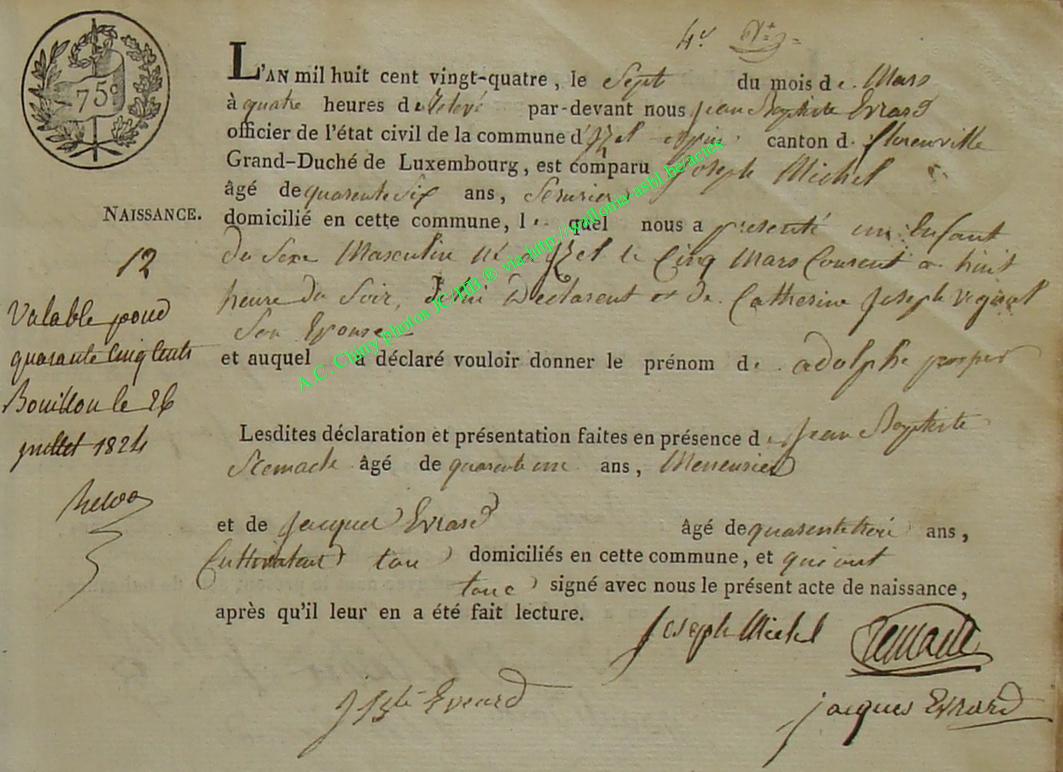 4e
75c
L'AN mil huit cent vingt-quatre, le Sept du mois de Mars
à quatre heures de relevé par-devant nous Jean Baptiste Evrard
officier de l'état civil de la commune d'Izel canton d. florenville
Grand-Duché de Luxembourg, est comparu Joseph Michel
âgé de quarente six ans, Serurier
NAISSANCE. domicilié en cette commune, le quel nous a presenté un Enfant
12
du Sexe Masculin né a Izel le Cinq Mars Courent a huit
heure du Soir, de lui Declarent et de Catherine Joseph
Son Epouse
et auquel a déclaré vouloir donner le prénom d. adolphe prosper
Valable pour
quarante Cinq Cents
Bouillon le 26
juillet 1824
Lesdites déclaration et présentation faites en présence de Jean Baptiste
Slemade âgé de quarente un ans, Menusier
et de Jacques Evrard âgé de quarente trois ans,
Cultivateur tous domiciliés en cette commune, et qui ont
tous signé avec nous le présent acte de naissance,
après qu'il leur en a été fait lecture.
Joseph Michel
J Bte Evrard
jacques Evrard
A.C. Chiny photos JC.HB.® via http://wallonia-asbl.be/actes